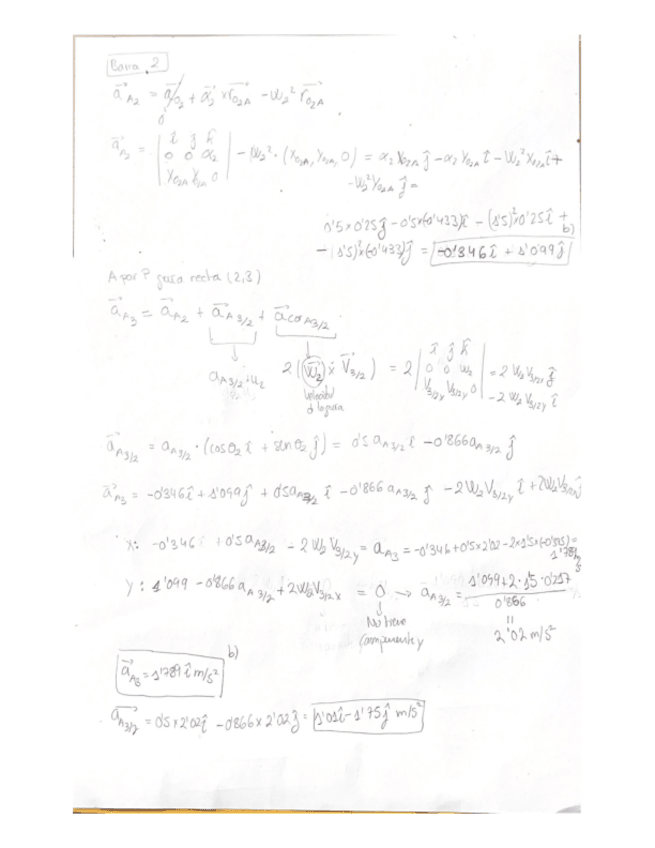 Barra 2
a⃗_A2 = a⃗_O2 + α⃗_2 × r⃗_O2A − ω_2² r⃗_O2A
0
a⃗_A2 = | î ĵ k̂ ; 0 0 α_2 ; X_O2A Y_O2A 0 | − ω_2² · (X_O2A, Y_O2A, 0) = α_2 X_O2A ĵ − α_2 Y_O2A î − ω_2² X_O2A î +
− ω_2² Y_O2A ĵ =
0'5×0'25ĵ − 0'5×(−0'433)î − (1'5)²×0'25î +
− (1'5)²×(−0'433)ĵ = −0'346î + 1'099ĵ b)
A por P guía recta (2,3)
a⃗_A3 = a⃗_A2 + a⃗_A3/2 + a⃗_corA3/2
a_A3/2 · u_2
2 (ω⃗_2 × V⃗_3/2) = 2 | î ĵ k̂ ; 0 0 ω_2 ; V_3/2x V_3/2y 0 | = 2 ω_2 V_3/2x ĵ
− 2 ω_2 V_3/2y î
Velocidad
d la guía
a⃗_A3/2 = a_A3/2 · (cosθ_2 î + senθ_2 ĵ) = 0'5 a_A3/2 î − 0'866 a_A3/2 ĵ
a⃗_A3 = −0'346î + 1'099ĵ + 0'5a_A3/2 î − 0'866 a_A3/2 ĵ − 2ω_2V_3/2y î + 2ω_2V_3/2x ĵ
X: −0'346 + 0'5 a_A3/2 − 2 ω_2 V_3/2y = a_A3 = −0'346+0'5×2'02−2×1'5×(−0'375)=
1'789
Y: 1'099 − 0'866 a_A3/2 + 2ω_2V_3/2x = 0 → a_A3/2 = 1'099+2·1'5·0'217 / 0'866
No tiene
componente y
=
2'02 m/s²
b)
a⃗_A3 = 1'789 î m/s²
a⃗_A3/2 = 0'5×2'02î − 0'866×2'02ĵ = 1'01î − 1'75ĵ m/s²